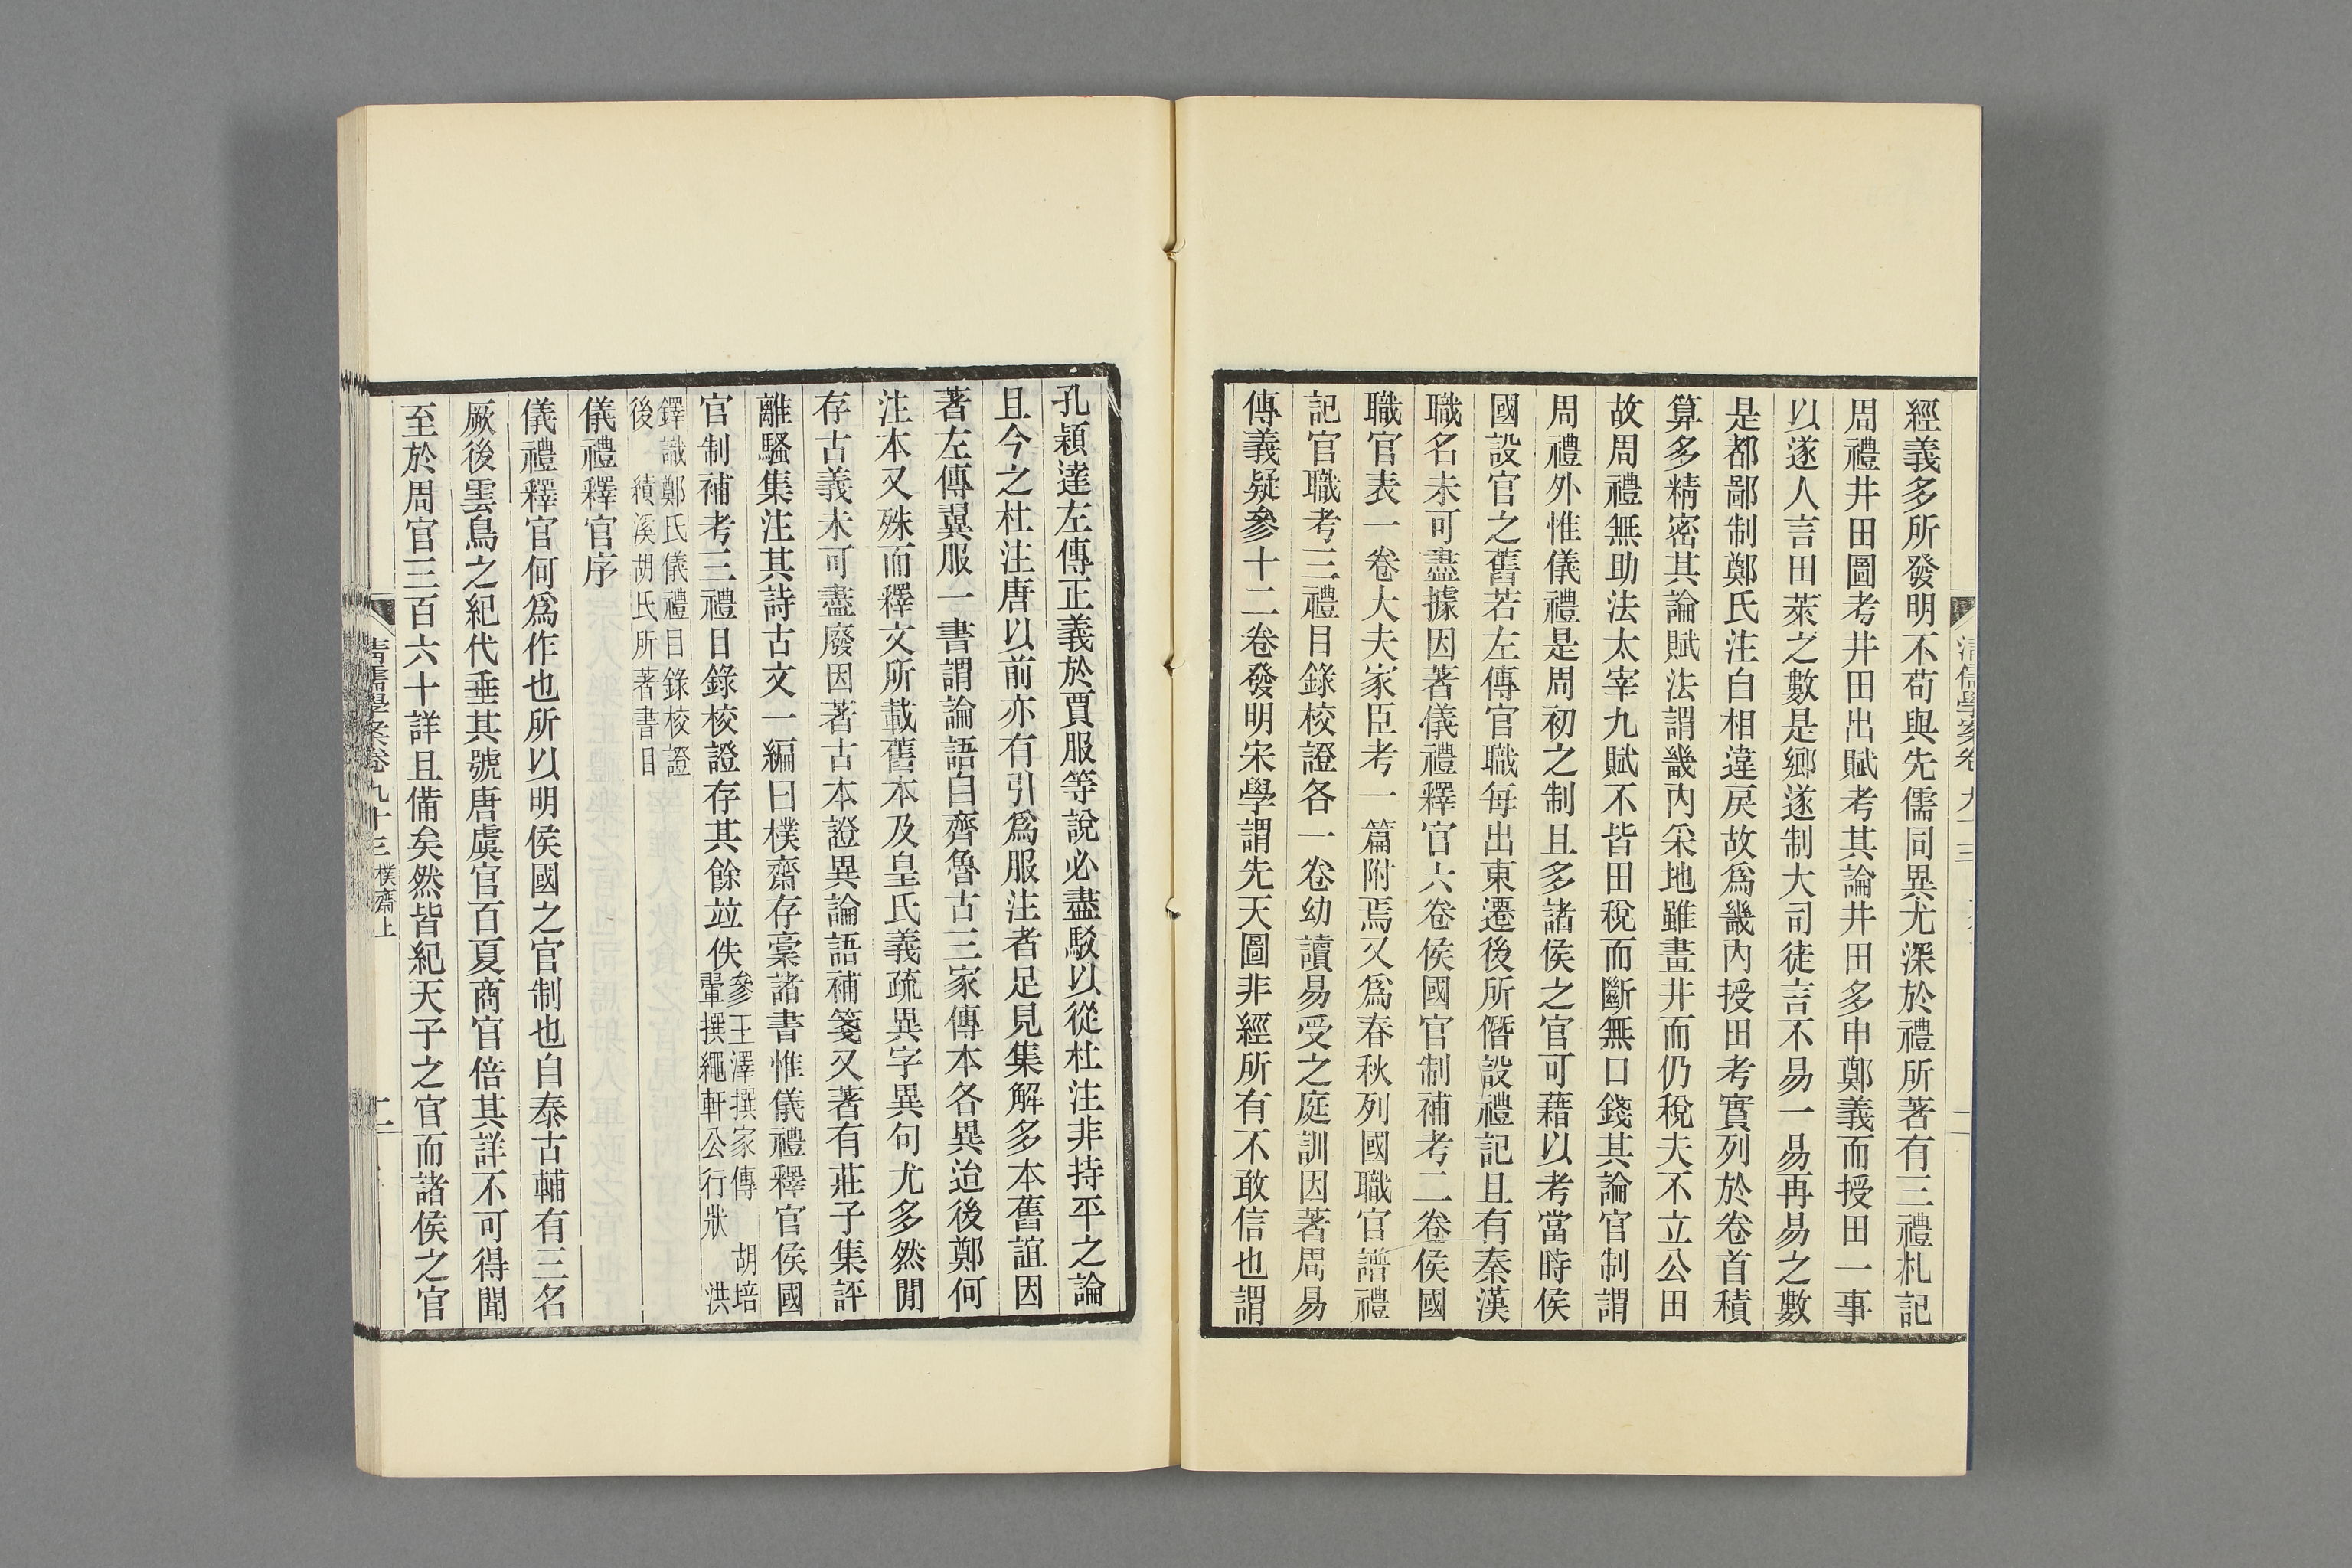 經義多所發明不苟與先儒同異尤深於禮所著有三禮札記
周禮井田圖考井田出賦考其論井田多申鄭義而授田一事
以遂人言田萊之數是鄉遂制大司徒言不易一易再易之數
是都鄙制鄭氏注自相違戾故爲畿內授田考實列於卷首積
算多精密其論賦法謂畿內采地雖畫井而仍稅夫不立公田
故周禮無助法太宰九賦不皆田稅而斷無口錢其論官制謂
周禮外惟儀禮是周初之制且多諸侯之官可藉以考當時侯
國設官之舊若左傳官職每出東遷後所僭設禮記且有秦漢
職名未可盡據因著儀禮釋官六卷侯國官制補考二卷侯國
職官表一卷大夫家臣考一篇附焉又爲春秋列國職官譜禮
記官職考三禮目錄校證各一卷幼讀易受之庭訓因著周易
傳義疑參十二卷發明宋學謂先天圖非經所有不敢信也謂
孔穎達左傳正義於賈服等說必盡駁以從杜注非持平之論
且今之杜注唐以前亦有引爲服注者足見集解多本舊誼因
著左傳翼服一書謂論語自齊魯古三家傳本各異迨後鄭何
注本又殊而釋文所載舊本及皇氏義疏異字異句尤多然閒
存古義未可盡廢因著古本證異論語補箋又著有莊子集評
離騷集注其詩古文一編曰樸齋存稾諸書惟儀禮釋官侯國
官制補考三禮目錄校證存其餘竝佚
參王澤撰家傳　胡培
翬撰繩軒公行狀　洪
鐸識鄭氏儀禮目錄校證
後　績溪胡氏所著書目
儀禮釋官序
儀禮釋官何爲作也所以明侯國之官制也自泰古輔有三名
厥後雲鳥之紀代垂其號唐虞官百夏商官倍其詳不可得聞
至於周官三百六十詳且備矣然皆紀天子之官而諸侯之官
清儒學案卷九十三 樸齋上